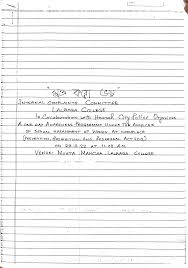 "মুক্ত করো ভয়"
INTERNAL COMPLAINTS COMMITTEE
LALBABA COLLEGE
In Collaboration with Howrah City Police Organizes
A one day Awareness Programme Under The
OF SEXUAL HARASSMENT OF WOMEN AT WORKPLACE
(PREVENTION, PROHIBITION AND REDRESSAL ACT 2013)
ON 22.11.22 AT 11.00 A.M.
VENUE: MUKTA MANCHA, LALBABA COLLEGE